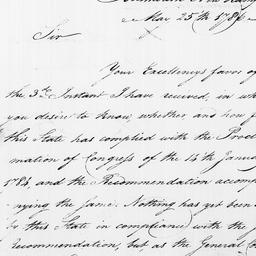 May 25th 1786
Sir
Your Excellencys favor of
the 3rd Instant I have received, in wh
you desire to know, whether and how f
this State has complied with the Procl
mation of Congress of the 14th Janua
1784 and the Recommendation accomp
nying the same. Nothing has yet been
by this State in compliance with the
recommendation, but as the General Co